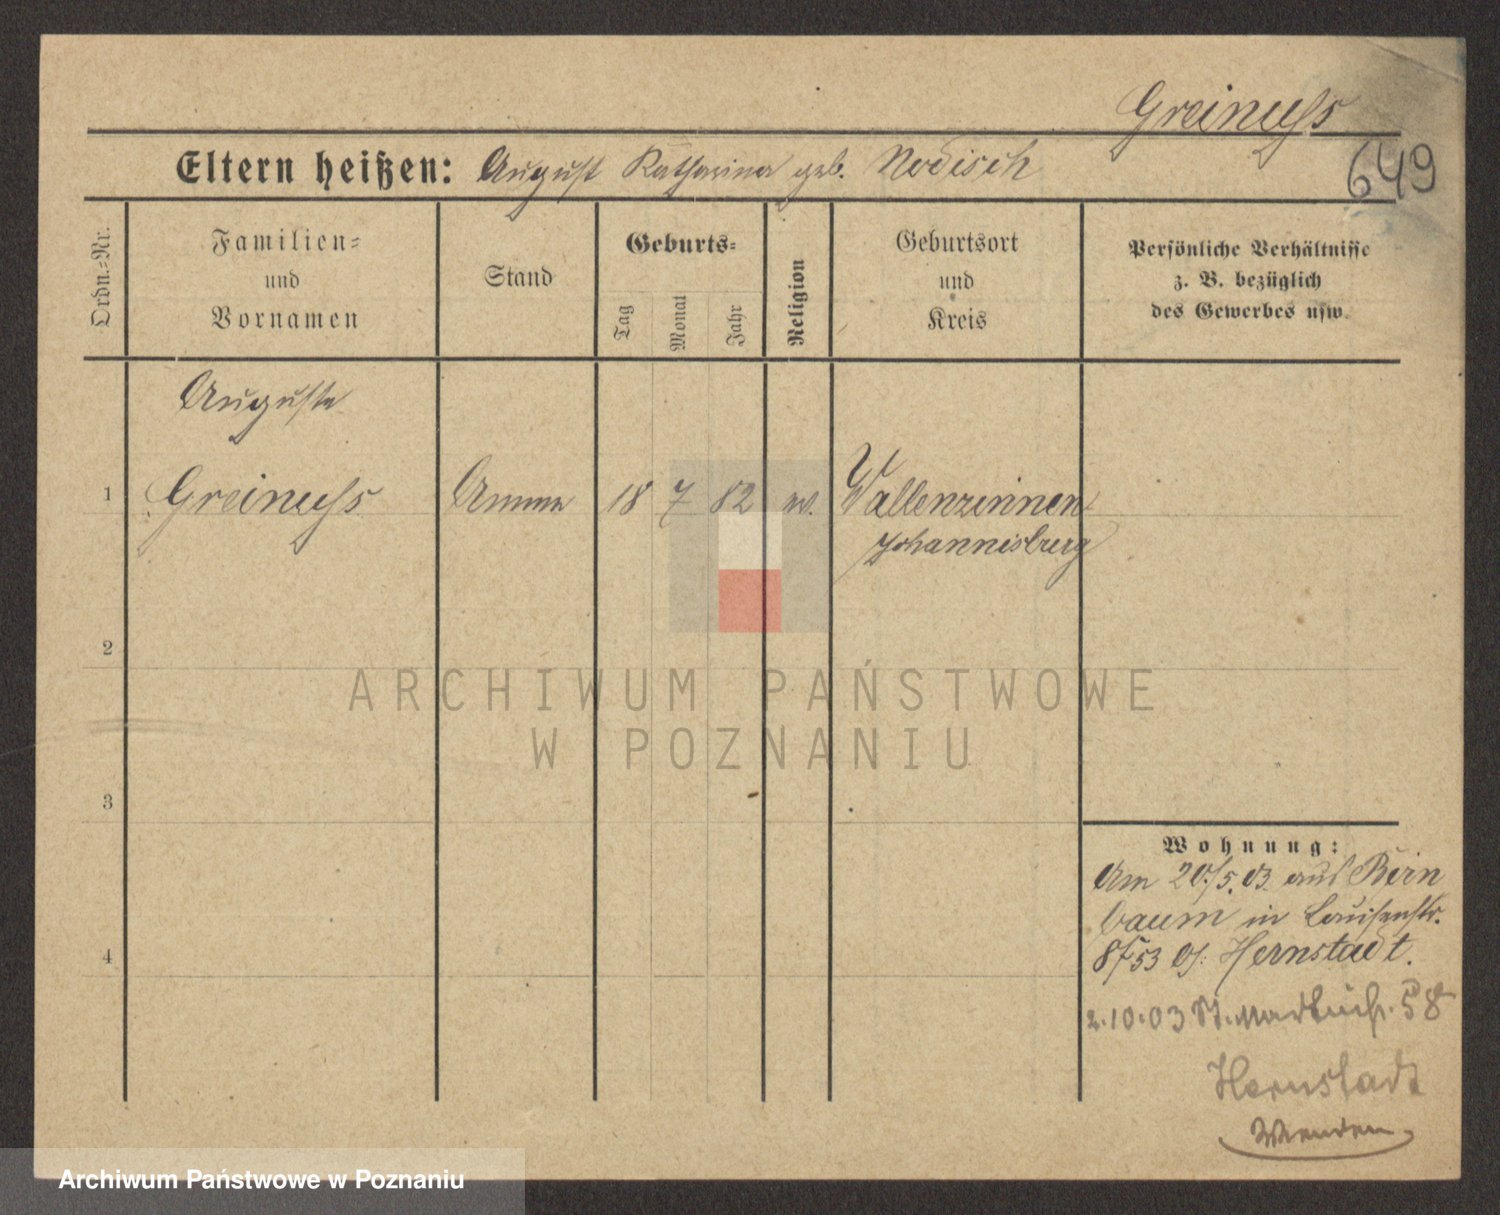 Greinuss
649
Eltern heißen: August Katharina geb. Nodisch
Ordn.-Nr.
Familien-
und
Vornamen
Stand
Geburts-
Tag
Monat
Jahr
Religion
Geburtsort
und
Kreis
Persönliche Verhältnisse
z. B. bezüglich
des Gewerbes usw.
Auguste
1 Greinuss Amme 18 7 82 ev. Wallenzinnen
Johannisburg
2
ARCHIWUM PAŃSTWOWE
W POZNANIU
3
4
Wohnung:
Am 20/5.03 aus Birn
baum in Louisenstr.
8 f 53 Hernstadt.
2.10.03 58
Hernstadt
Wenden
Archiwum Państwowe w Poznaniu